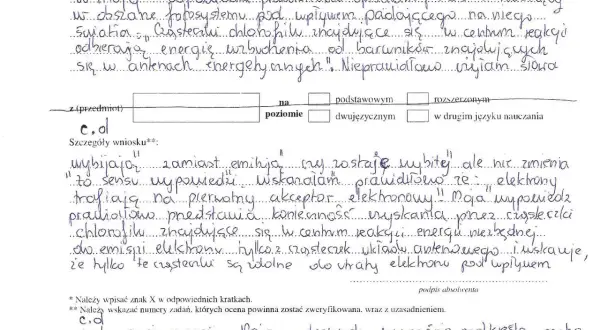 w obszarze fotosystemu pod wpływem padającego na niego
światła. "Cząsteczki chlorofilu znajdujące się w centrum reakcji
odbierają energię wzbudzenia od barwników znajdujących
się w antenach energetycznych". Nieprawidłowo użyłam słowa
z (przedmiot) na poziomie podstawowym rozszerzonym
dwujęzycznym w drugim języku nauczania
c.d
Szczegóły wniosku**:
wybijają" zamiast emitują" czy zostaję wybite" ale nie zmienia
to sensu wypowiedzi. wskazałam prawidłowo że: elektrony
trafiają na pierwotny akceptor elektronowy". Moja wypowiedź
prawidłowo przedstawia konieczność uzyskania przez cząsteczki
chlorofilu znajdujące się w centrum reakcji energii niezbędnej
do emisji elektronu tylko z cząsteczek układu antenowego i wskazuje,
że tylko te cząsteczki są zdolne do utraty elektronu pod wpływem
podpis absolwenta
* Należy wpisać znak X w odpowiednich kratkach.
** Należy wskazać numery zadań, których ocena powinna zostać zweryfikowana, wraz z uzasadnieniem.
c.d